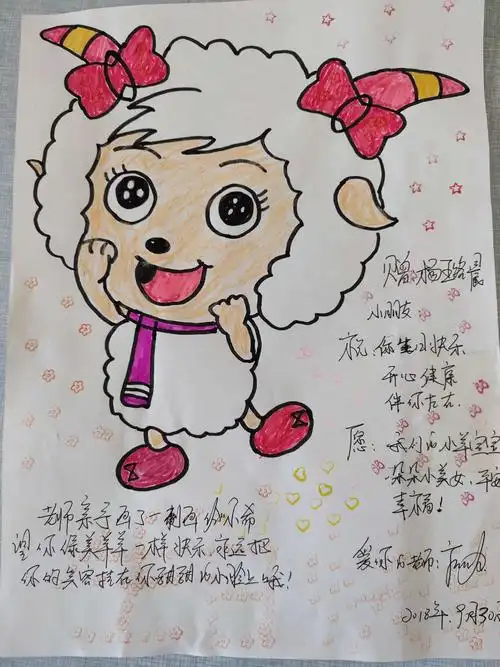 小朋友
祝:你生日快乐
开心健康
伴你左右.
愿:我们的小羊宝宝
朵朵小美女,平安
幸福!
爱你的老师:
2018年.9月30
老师亲手画了一幅画给你希
望你像美羊羊一样快乐.永远把
你的笑容挂在你甜甜的小脸上哦!